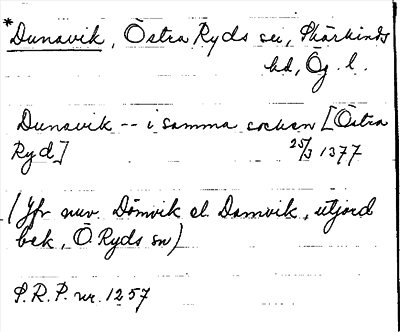 *Dunavik, Östra Ryds sn, Skärkinds
hd, Ög. l.
Dunavik -- i samma sochen [Östra
Ryd] 25/3 1377
(Jfr nuv. Dömvik el. Damvik, utjord
bek, Ö Ryds sn)
S.R.P. nr. 1257